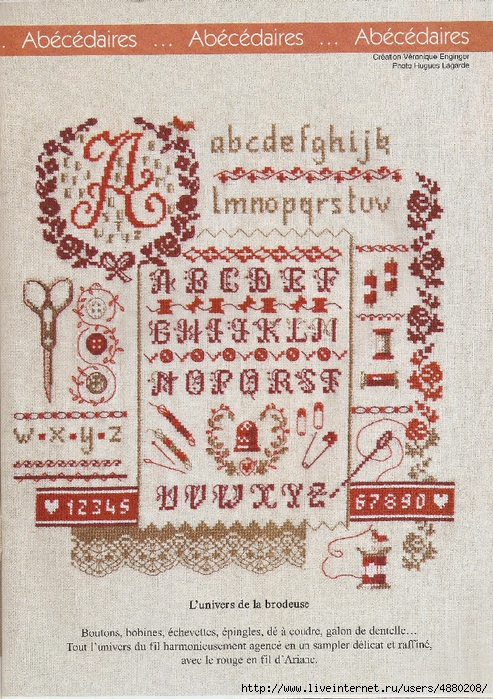 ... Abécédaires ... Abécédaires ... Abécédaires
Création Véronique Enginger
Photo Hugues Lagarde
A
abcdefghijk
lmnopqrstuv
ABCDEF
GHIJKLM
NOPQRST
w·x·y·z
UVWXYZ
12345
67890
L'univers de la brodeuse
Boutons, bobines, échevettes, épingles, dé à coudre, galon de dentelle...
Tout l'univers du fil harmonieusement agencé en un sampler délicat et raffiné,
avec le rouge en fil d'Ariane.
http://www.liveinternet.ru/users/4880208/